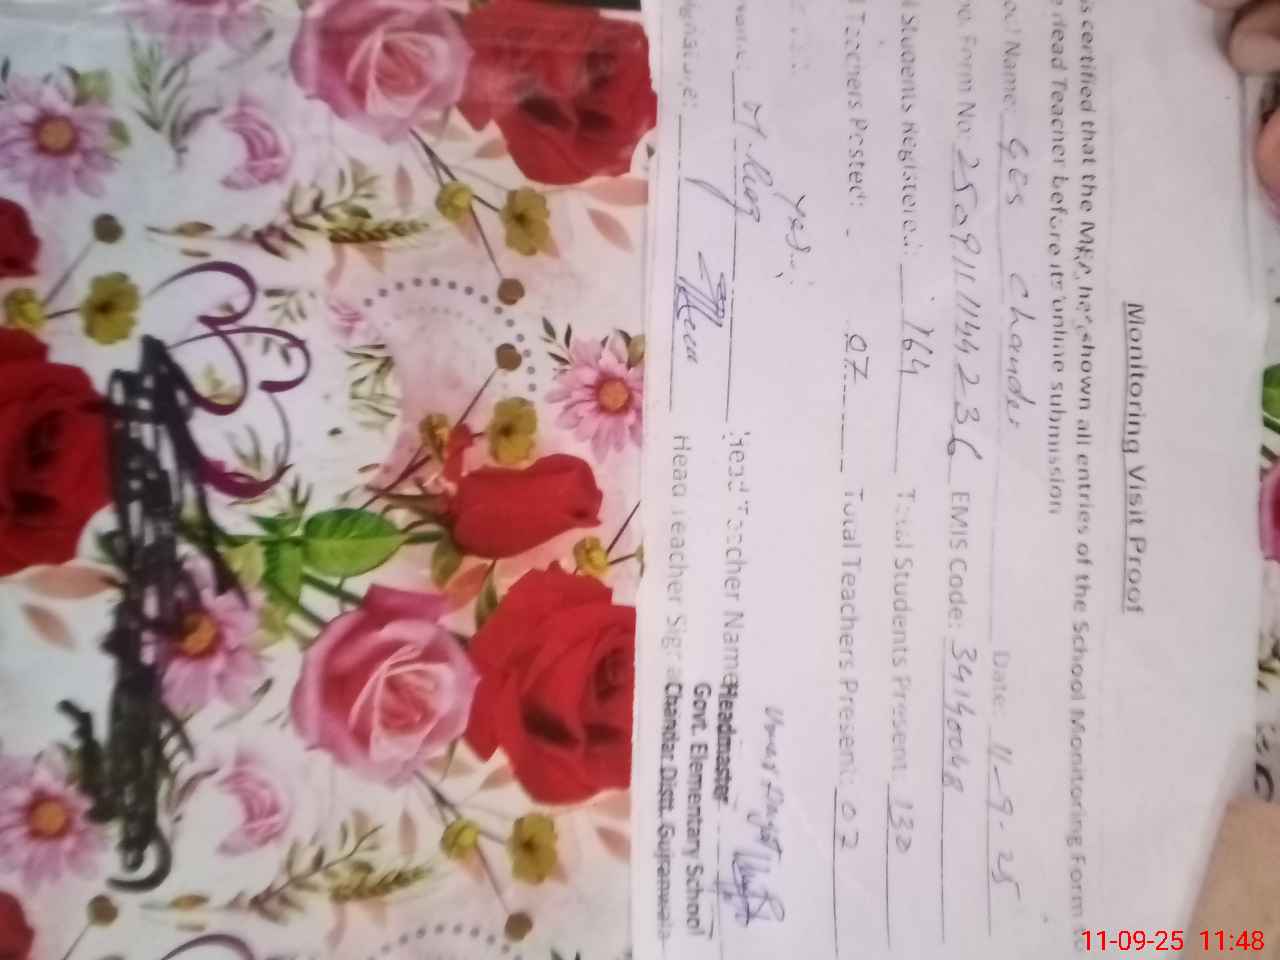 Monitoring Visit Proof
is certified that the MEA has shown all entries of the School Monitoring Form to
Head Teacher before its online submission
Name: GES Chander Date: 11-9-25
Form No: 2509111144236 EMIS Code: 34140048
Students Registered: 164 Total Students Present: 130
Teachers Posted: 07 Total Teachers Present: 07
Yes
Head Teacher Name
Headmaster
Govt. Elementary School
Signature: Head Teacher Signa
Chandar Distt. Gujranwala
11-09-25 11:48